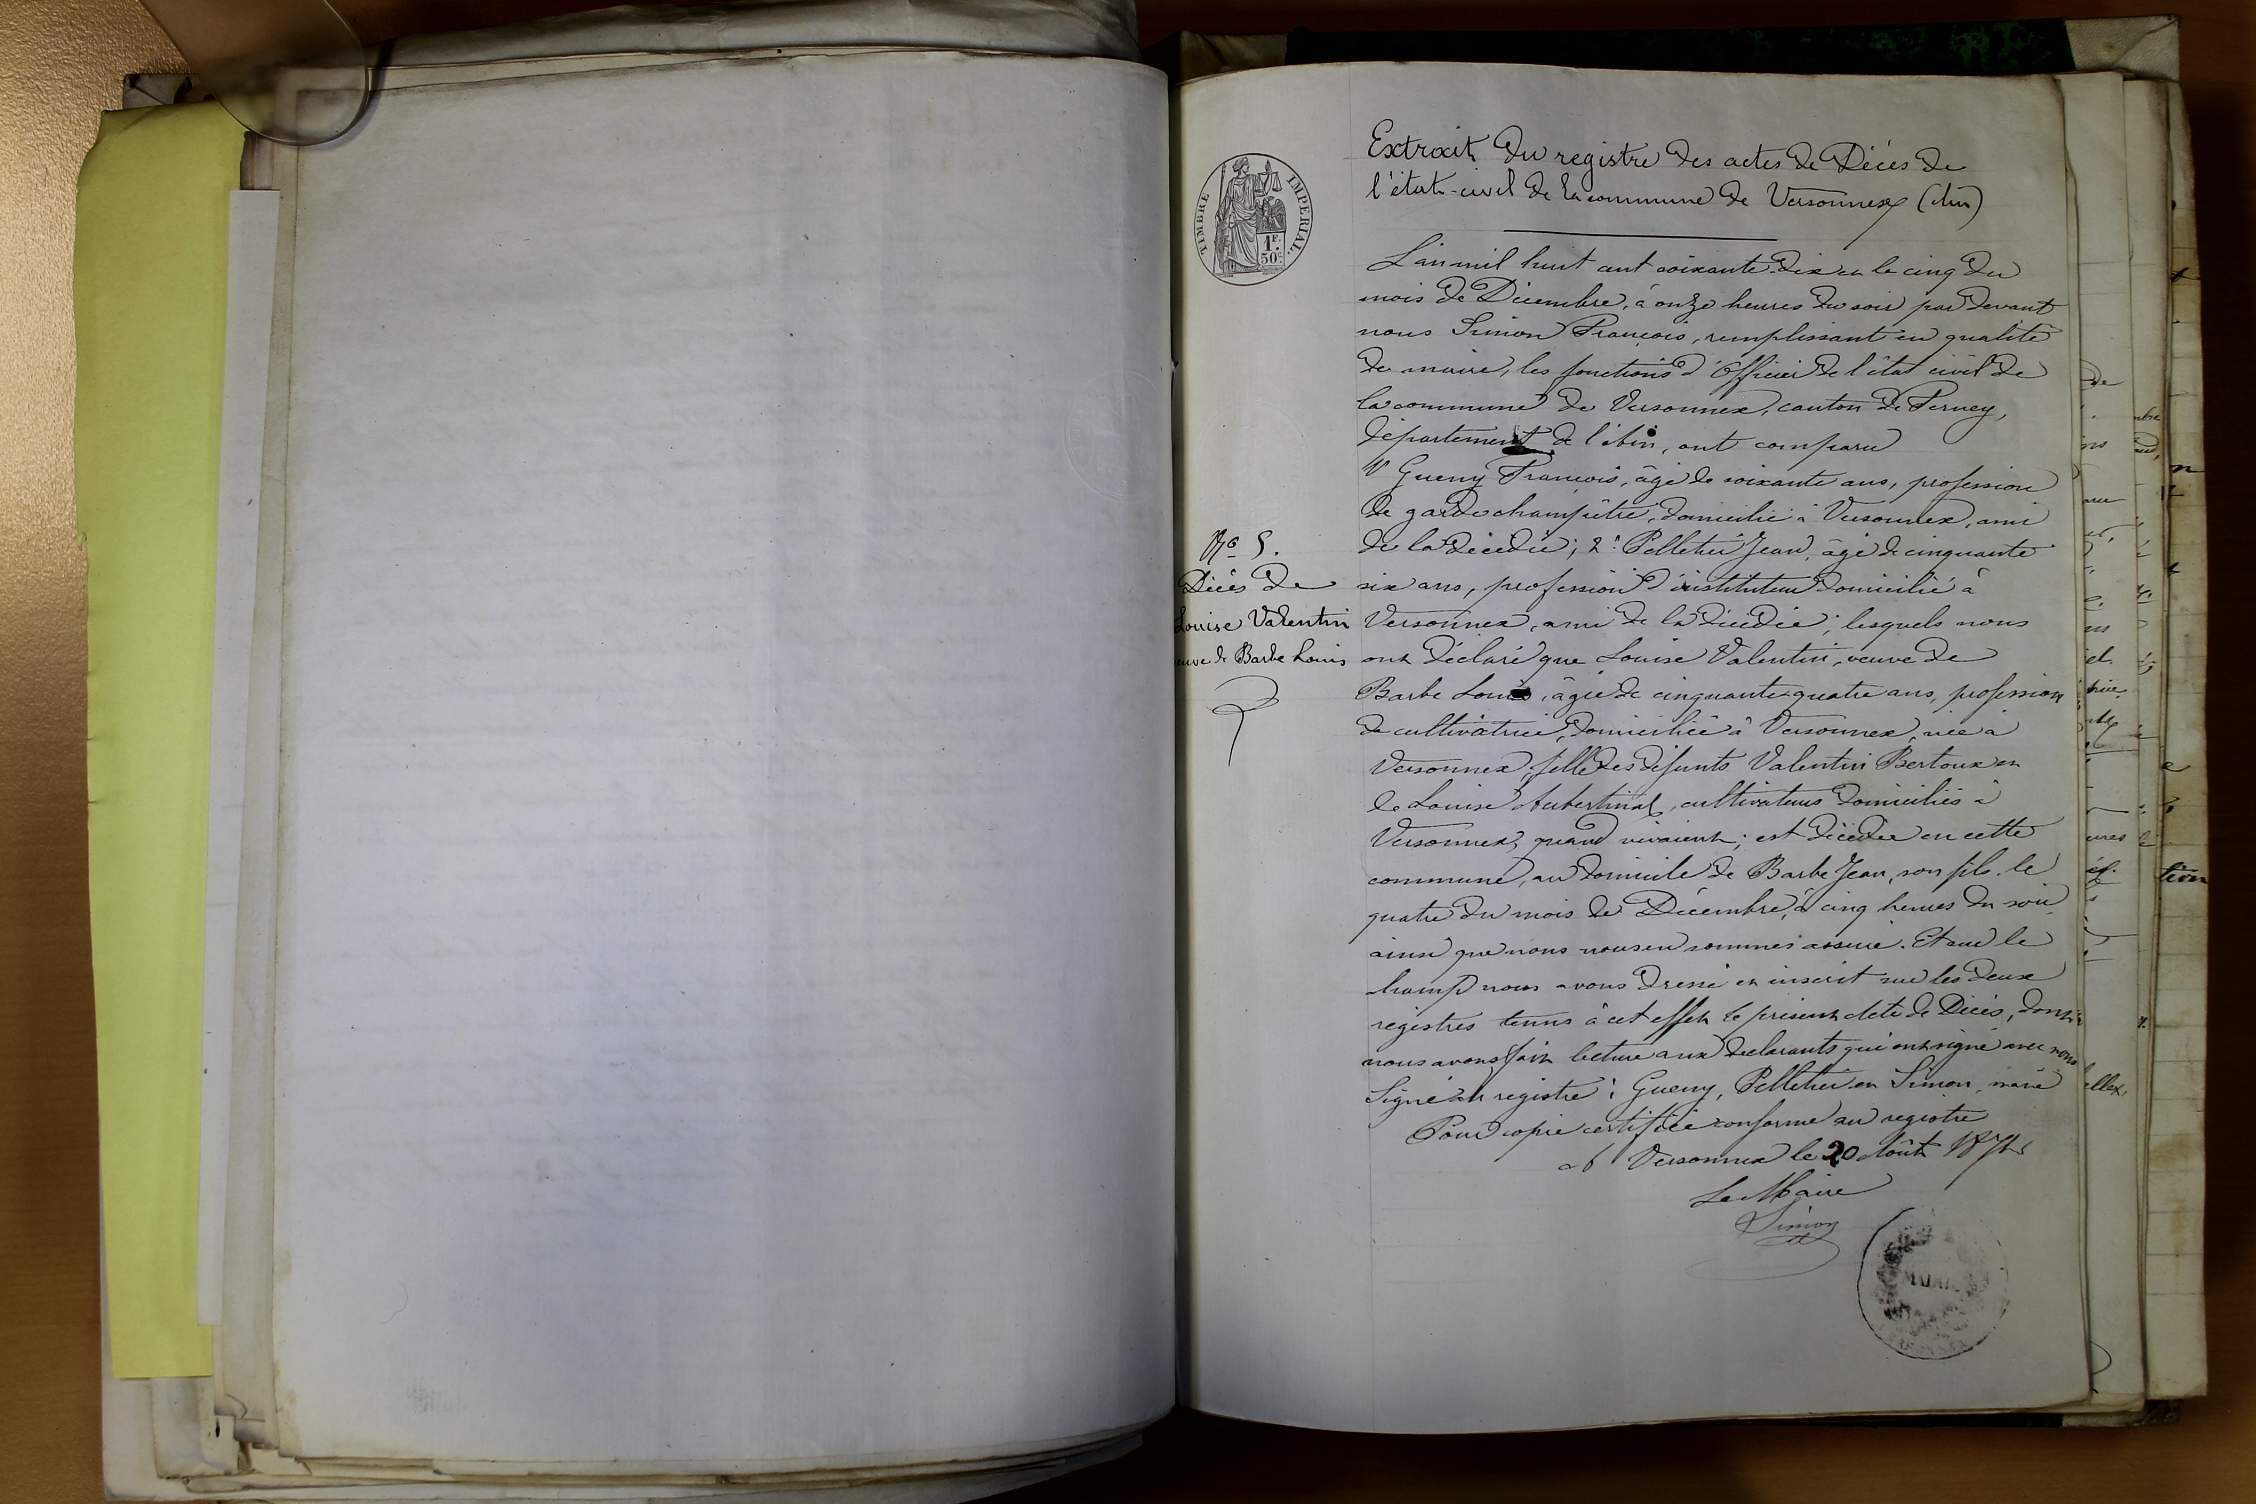 TIMBRE IMPERIAL
1F. 50c.
Extrait du registre des actes de Décés de
l'état-civil de la commune de Versonnex (Ain)
L'an mil huit cent soixante-dix et le cinq du
mois de Décembre, à onze heures du soir par devant
nous Simon François, remplissant en qualité
de maire, les fonctions d'Officier de l'état civil de
la commune de Versonnex, canton de Ferney,
département de l'Ain, ont comparu
1° Gueny François, âgé de soixante ans, profession
de garde champêtre, domicilié à Versonnex, ami
de la décédée; 2° Pelletier Jean, âgé de cinquante
six ans, profession d'instituteur domicilié à
Versonnex, ami de la décédée; lesquels nous
ont déclaré que Louise Valentin, veuve de
Barbe Louis, âgée de cinquante-quatre ans, profession
de cultivatrice, domiciliée à Versonnex, née à
Versonnex, fille des défunts Valentin Bertoux et
de Louise, cultivateurs domiciliés à
Versonnex, quand vivaient; est décédée en cette
commune, au domicile de Barbe Jean, son fils, le
quatre du mois de Décembre, à cinq heures du soir
ainsi que nous nous en sommes assuré. Et sur le
champ nous avons dressé et inscrit sur les deux
registres tenus à cet effet le présent acte de Décés, dont
nous avons fait lecture aux déclarants qui ont signé avec nous
Signé au registre: Gueny, Pelletier et Simon, maire
Pour copie certifiée conforme au registre
A Versonnex le 20 Août 1871
Le Maire
Simon
MAIRIE
N° 5.
Décés de
Louise Valentin
veuve de Barbe Louis